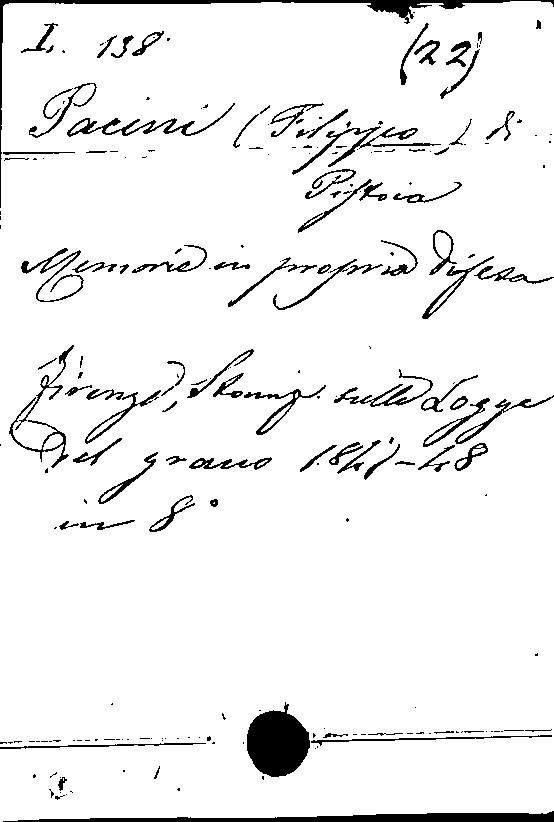 I. 138. (22)
Pacini (Filippo) di
Pistoia
Memorie in propria difesa
Firenze, Stamp. sulle Logge
del grano 1847-48
in 8°